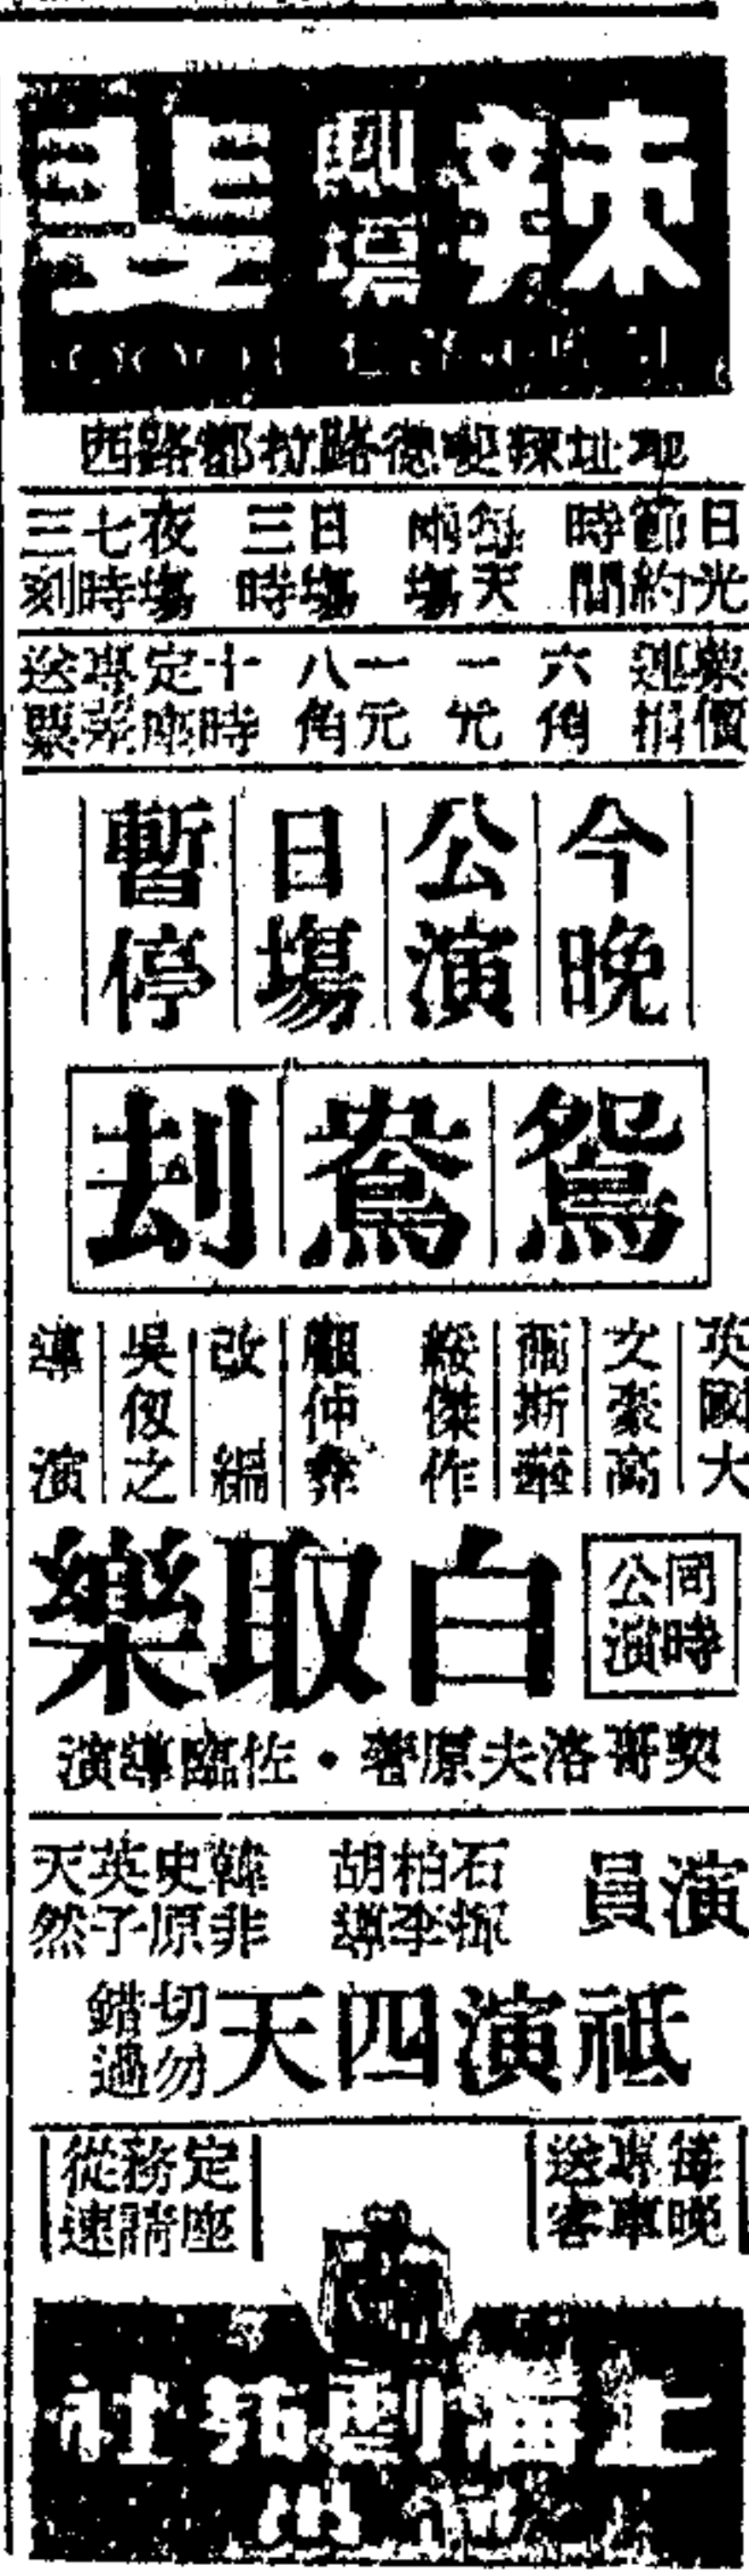 辣斐
劇場
地址辣斐德路拉都路西
日光節約時間 每天兩場 日場三時 夜場七時三刻
票價連捐 六角 一元 一元八角 十時定座專差送票
今晚公演 日場暫停
鴛鴦刦
英國大文豪高爾斯華綏傑作 顧仲彝改編 吳仞之導演
同時公演
白取樂
契哥洛夫原著・佐臨導演
演員 石揮 柏李 胡導 韓非 史原 英子 天然
祗演四天 切勿錯過
每晚專車送客
定座務請從速
上海劇藝社